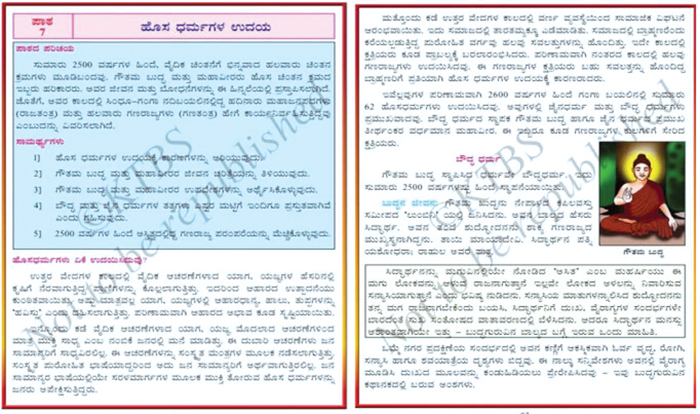 ಪಾಠ
7
ಹೊಸ ಧರ್ಮಗಳ ಉದಯ
ಪಾಠದ ಪರಿಚಯ
ಸುಮಾರು 2500 ವರ್ಷಗಳ ಹಿಂದೆ, ವೈದಿಕ ಚಿಂತನೆಗೆ ಭಿನ್ನವಾದ ಹಲವಾರು ಚಿಂತನ
ಕ್ರಮಗಳು ಮೂಡಿಬಂದವು. ಗೌತಮ ಬುದ್ಧ ಮತ್ತು ಮಹಾವೀರರು ಹೊಸ ಚಿಂತನ ಕ್ರಮದ
ಇಬ್ಬರು ಹರಿಕಾರರು. ಅವರ ಜೀವನ ಮತ್ತು ಬೋಧನೆಗಳನ್ನು ಈ ಹಿನ್ನೆಲೆಯಲ್ಲಿ ಪ್ರಸ್ತುತಪಡಿಸಲಾಗಿದೆ.
ಜೊತೆಗೆ, ಅವರ ಕಾಲದಲ್ಲಿ ಸಿಂಧೂ-ಗಂಗಾ ನದಿಬಯಲಿನಲ್ಲಿದ್ದ ಹದಿನಾರು ಮಹಾಜನಪದಗಳು
(ರಾಜತಂತ್ರ) ಮತ್ತು ಹಲವಾರು ಗಣರಾಜ್ಯಗಳು (ಗಣತಂತ್ರ) ಹೇಗೆ ಕಾರ್ಯನಿರ್ವಹಿಸುತ್ತಿದ್ದವು
ಎಂಬುದನ್ನು ವಿವರಿಸಲಾಗಿದೆ.
ಸಾಮರ್ಥ್ಯಗಳು
1] ಹೊಸ ಧರ್ಮಗಳ ಉದಯಕ್ಕೆ ಕಾರಣಗಳನ್ನು ಅರಿಯುವುದು.
2] ಗೌತಮ ಬುದ್ಧ ಮತ್ತು ಮಹಾವೀರರ ಜೀವನ ಚರಿತ್ರೆಯನ್ನು ತಿಳಿಯುವುದು.
3] ಗೌತಮ ಬುದ್ಧ ಮತ್ತು ಮಹಾವೀರರ ಉಪದೇಶಗಳನ್ನು ಅರ್ಥೈಸಿಕೊಳ್ಳುವುದು.
4] ಬೌದ್ಧ ಮತ್ತು ಜೈನ ಧರ್ಮಗಳ ತತ್ವಗಳು ಎಷ್ಟರ ಮಟ್ಟಿಗೆ ಇಂದಿಗೂ ಪ್ರಸ್ತುತವಾಗಿವೆ
ಎಂದು ಗ್ರಹಿಸುವುದು.
5] 2500 ವರ್ಷಗಳ ಹಿಂದೆ ಅಸ್ತಿತ್ವದಲ್ಲಿದ್ದ ಗಣರಾಜ್ಯ ಪರಂಪರೆಯನ್ನು ಮೆಚ್ಚಿಕೊಳ್ಳುವುದು.
ಹೊಸಧರ್ಮಗಳು ಏಕೆ ಉದಯಿಸಿದುವು?
ಉತ್ತರ ವೇದಗಳ ಕಾಲದಲ್ಲಿ ವೈದಿಕ ಆಚರಣೆಗಳಾದ ಯಾಗ, ಯಜ್ಞಗಳ ಹೆಸರಿನಲ್ಲಿ
ಕೃಷಿಗೆ ನೆರವಾಗುತ್ತಿದ್ದ ಕೊಲ್ಲಲಾಗುತ್ತಿತ್ತು. ಇದರಿಂದ ಆಹಾರದ ಉತ್ಪಾದನೆಯು
ಕುಂಠಿತವಾಯಿತು. ಅಷ್ಟು ಮಾತ್ರವಲ್ಲ ಯಾಗ, ಯಜ್ಞಗಳಲ್ಲಿ ಆಹಾರಧಾನ್ಯ, ಹಾಲು, ತುಪ್ಪಗಳನ್ನು
'ಹವಿಸು' ಎಂದು ದಹಿಸಲಾಗುತ್ತಿತ್ತು. ಪರಿಣಾಮವಾಗಿ ಆಹಾರದ ಅಭಾವ ಕೂಡ ಸೃಷ್ಟಿಯಾಯಿತು.
ಇನ್ನೊಂದು ಕಡೆ ವೈದಿಕ ಆಚರಣೆಗಳಾದ ಯಾಗ, ಯಜ್ಞ ಮೊದಲಾದ ಆಚರಣೆಗಳಿಂದ
ಮಾತ್ರ ಮುಕ್ತಿ ಸಾಧ್ಯ ಎಂಬ ನಂಬಿಕೆ ಜನರಲ್ಲಿ ಮನೆ ಮಾಡಿತ್ತು. ಈ ದುಬಾರಿ ಆಚರಣೆಗಳು ಜನ
ಸಾಮಾನ್ಯರಿಗೆ ಸಾಧ್ಯವಿರಲಿಲ್ಲ. ಈ ಆಚರಣೆಗಳನ್ನು ಸಂಸ್ಕೃತ ಮಂತ್ರಗಳ ಮೂಲಕ ನಡೆಸಲಾಗುತ್ತಿತ್ತು.
ಸಂಸ್ಕೃತ ಪುರೋಹಿತ ಭಾಷೆಯಾದ್ದರಿಂದ ಅದು ಜನ ಸಾಮಾನ್ಯರಿಗೆ ಅರ್ಥವಾಗುತ್ತಿರಲಿಲ್ಲ. ಜನ
ಸಾಮಾನ್ಯರ ಭಾಷೆಯಲ್ಲಿಯೇ ಸರಳಮಾರ್ಗಗಳ ಮೂಲಕ ಮುಕ್ತಿ ತೋರುವ ಹೊಸ ಧರ್ಮಗಳನ್ನು
ಜನರು ಅಪೇಕ್ಷಿಸುತ್ತಿದ್ದರು.
ಮತ್ತೊಂದು ಕಡೆ ಉತ್ತರ ವೇದಗಳ ಕಾಲದಲ್ಲಿ ವರ್ಣ ವ್ಯವಸ್ಥೆಯಿಂದ ಸಾಮಾಜಿಕ ವಿಘಟನೆ
ಆರಂಭವಾಯಿತು. ಇದು ಸಮಾಜದಲ್ಲಿ ತಾರತಮ್ಯಕ್ಕೂ ಎಡೆಮಾಡಿತು. ಸಮಾಜದಲ್ಲಿ ಬ್ರಾಹ್ಮಣರೆಂದು
ಕರೆಯಲ್ಪಡುತ್ತಿದ್ದ ಪುರೋಹಿತ ವರ್ಗವು ಹಲವು ಸವಲತ್ತುಗಳನ್ನು ಹೊಂದಿತ್ತು. ಇದೇ ಕಾಲದಲ್ಲಿ
ಕ್ಷತ್ರಿಯರು ಕೂಡ ಪ್ರಾಬಲ್ಯಕ್ಕೆ ಬರಲಾರಂಭಿಸಿದರು. ಪರಿಣಾಮವಾಗಿ ನಂತರದ ಕಾಲದಲ್ಲಿ ಹಲವು
ಗಣರಾಜ್ಯಗಳು ಉದಯಿಸಿದವು. ಈ ಗಣರಾಜ್ಯಗಳ ಕ್ಷತ್ರಿಯರು ಬಹು ಸವಲತ್ತನ್ನು ಹೊಂದಿದ್ದ
ಬ್ರಾಹ್ಮಣರಿಗೆ ಪ್ರತಿಯಾಗಿ ಹೊಸ ಧರ್ಮಗಳ ಉದಯಕ್ಕೆ ಕಾರಣರಾದರು.
ಇವೆಲ್ಲವುಗಳ ಪರಿಣಾಮವಾಗಿ 2600 ವರ್ಷಗಳ ಹಿಂದೆ ಗಂಗಾ ಬಯಲಿನಲ್ಲಿ ಸುಮಾರು
62 ಹೊಸಧರ್ಮಗಳು ಉದಯಿಸಿದವು. ಅವುಗಳಲ್ಲಿ ಜೈನಧರ್ಮ ಮತ್ತು ಬೌದ್ಧ ಧರ್ಮಗಳು
ಪ್ರಮುಖವಾದವು. ಬೌದ್ಧ ಧರ್ಮದ ಸ್ಥಾಪಕ ಗೌತಮ ಬುದ್ಧ ಹಾಗೂ ಜೈನ ಧರ್ಮದ ಪ್ರಮುಖ
ತೀರ್ಥಂಕರ ವರ್ಧಮಾನ ಮಹಾವೀರ. ಈ ಇಬ್ಬರೂ ಕೂಡ ಗಣರಾಜ್ಯಗಳ ಕುಲಗಳಿಗೆ ಸೇರಿದ
ಕ್ಷತ್ರಿಯರು.
ಬೌದ್ಧ ಧರ್ಮ
ಗೌತಮ ಬುದ್ಧ ಸ್ಥಾಪಿಸಿದ ಧರ್ಮವೇ ಬೌದ್ಧಧರ್ಮ. ಇದು
ಸುಮಾರು 2500 ವರ್ಷಗಳಷ್ಟು ಹಿಂದೆ ಸ್ಥಾಪನೆಯಾಯಿತು.
ಬುದ್ಧನ ಜೀವನ: ಗೌತಮ ಬುದ್ಧನು ನೇಪಾಳದ ಕಪಿಲವಸ್ತು
ಸಮೀಪದ 'ಲುಂಬಿನಿ' ಯಲ್ಲಿ ಜನಿಸಿದನು. ಅವನ ಬಾಲ್ಯದ ಹೆಸರು
ಸಿದ್ಧಾರ್ಥ. ಅವನ ತಂದೆ ಶುದ್ಧೋದನನು ಶಾಕ್ಯ ಗಣರಾಜ್ಯದ
ಮುಖ್ಯಸ್ಥನಾಗಿದ್ದನು. ತಾಯಿ ಮಾಯಾದೇವಿ. ಸಿದ್ಧಾರ್ಥನ ಪತ್ನಿ
ಯಶೋಧರಾ; ರಾಹುಲ ಅವರ ಪುತ್ರ.
ಗೌತಮ ಬುದ್ಧ
ಸಿದ್ಧಾರ್ಥನನ್ನು ಮಗುವಿನಲ್ಲಿಯೇ ನೋಡಿದ 'ಅಸಿತ' ಎಂಬ ಮಹರ್ಷಿಯು ಈ
ಮಗು ಲೋಕವನ್ನು ರಾಜನಾಗುತ್ತಾನೆ ಇಲ್ಲವೇ ಲೋಕದ ಅಳಲನ್ನು ನಿವಾರಿಸುವ
ಸನ್ಯಾಸಿಯಾಗುತ್ತಾನೆ ಎಂದು ಭವಿಷ್ಯ ನುಡಿದನು. ಸನ್ಯಾಸಿಯ ಮಾತುಗಳನ್ನಾಲಿಸಿದ ಶುದ್ಧೋದನನು
ತನ್ನ ಮಗ ರಾಜನಾಗಬೇಕೆಂದು ಬಯಸಿ, ಸಿದ್ಧಾರ್ಥನಿಗೆ ದುಃಖ, ವೈರಾಗ್ಯಗಳ ಸಂದರ್ಭಗಳೇ
ಬಾರದಂತೆ ಸುಖ ಸಂತೋಷದ ವಾತಾವರಣದಲ್ಲಿ ಬೆಳೆಸಿದನು. ಆದರೂ ಸಿದ್ಧಾರ್ಥನ ಮನಸ್ಸು
ಇತ್ತು – ಬುದ್ಧಗುರುವಿನ ಬಾಲ್ಯದ ಬಗ್ಗೆ ಇರುವ ಒಂದು ಮಾಹಿತಿ.
ಒಮ್ಮೆ ನಗರ ಪ್ರದಕ್ಷಿಣೆಯ ಸಂದರ್ಭದಲ್ಲಿ ಅವನ ಕಣ್ಣಿಗೆ ಆಕಸ್ಮಿಕವಾಗಿ ಓರ್ವ ವೃದ್ಧ, ರೋಗಿ,
ಸನ್ಯಾಸಿ ಹಾಗೂ ಶವಯಾತ್ರೆಯ ದೃಶ್ಯಗಳು ಬಿದ್ದವು. ಈ ನಾಲ್ಕು ಸನ್ನಿವೇಶಗಳು ಅವನಲ್ಲಿ ವೈರಾಗ್ಯ
ಮೂಡಿಸಿ ದುಃಖದ ಮೂಲವನ್ನು ಕಂಡುಹಿಡಿಯಲು ಪ್ರೇರೇಪಿಸಿದವು – ಇವು ಬುದ್ಧಗುರುವಿನ
ಕಥಾನಕದಲ್ಲಿ ಬರುವ ಅಂಶಗಳು.
©KTBS
Not to be republished